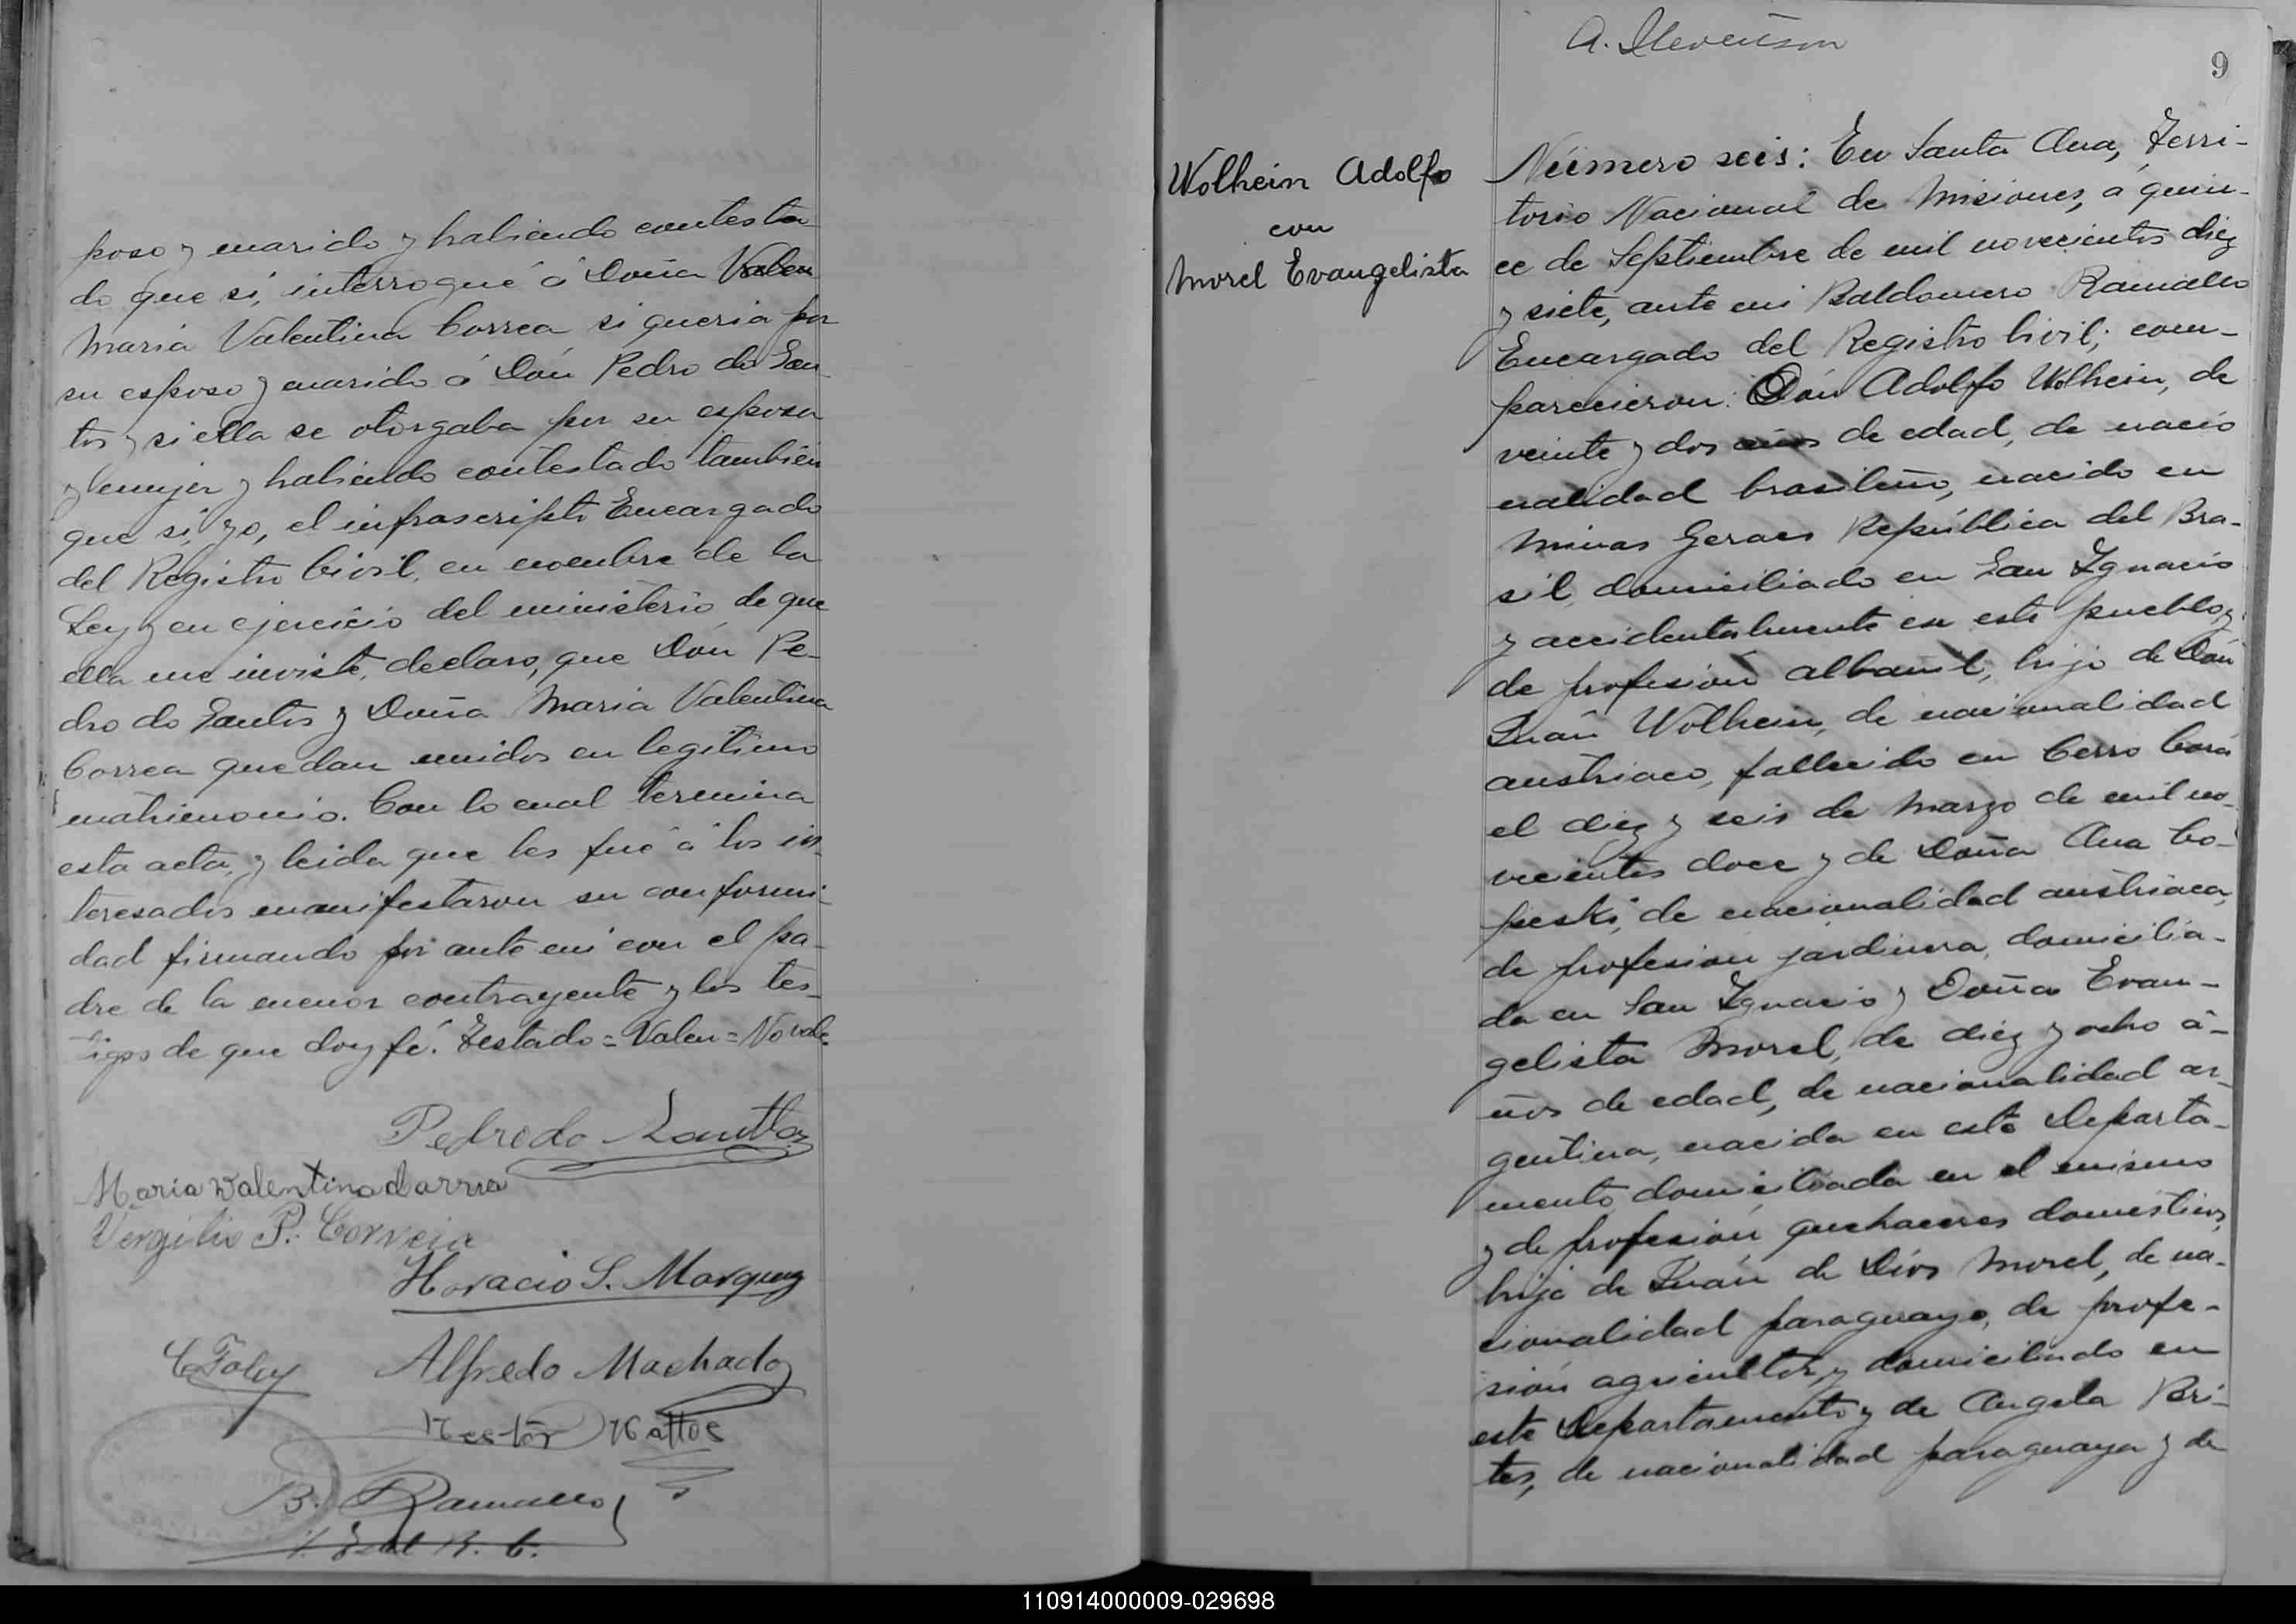 poso y marido y habiendo contesta
do que si, interrogué á Doña Valen
Maria Valentina Correa si queria por
su esposo y marido á Dón Pedro do San
tos y si ella se otorgaba por su esposa
y mujer y habiendo contestado también
que si, yo, el infrascripto Encargado
del Registro Civil, en nombre de la
Ley y en ejercicio del ministerio de que
ella me inviste, declaro, que Dón Pe-
dro do Santos y Doña Maria Valentina
Correa quedan unidos en legitimo
matrimonio. Con lo cual termina
esta acta, y leida que les fué á los in-
teresados manifestaron su conformi-
dad firmando por ante mi con el pa-
dre de la menor contrayente y los tes-
tigos de que doy fé. Testado=Valen=No vale=
Pedro do
Maria Valentina
Vergilio P. Correia
Horacio S. Marquez
C Foley Alfredo Machado
Nestór Mattos
B. Ramallo
R. C.
A. Stevenson
9
Wolhein Adolfo
con
Morel Evangelista
Número seis: En Santa Ana, Terri-
torio Nacional de Misiones, á quin-
ce de Septiembre de mil novecientos diez
y siete, ante mi Baldomero Ramallo
Encargado del Registro Civil; com-
parecieron: Dón Adolfo Wolhein, de
veinte y dos años de edad, de nacio
nalidad brasileño, nacido en
Minas Geraes República del Bra-
sil, domiciliado en San Ignacio
y accidentalmente en este pueblo y
de profesión albañil, hijo de Dón
Juán Wolhein, de nacionalidad
austriaco, fallecido en Cerro Corá
el diez y seis de Marzo de mil no-
vecientos doce y de Doña Ana Co-
peski, de nacionalidad austriaca,
de profesion jardinera, domicilia-
da en San Ignacio y Doña Evan-
gelista Morel, de diez y ocho a-
ños de edad, de nacionalidad ar-
gentina, nacida en este Departa-
mento domiciliada en el mismo
y de profesión quehaceres domésticos,
hija de Juán de Dios Morel, de na-
cionalidad paraguayo, de profe-
sión agricultor y domiciliado en
este Departamento y de Angela Bri-
tes, de nacionalidad paraguaya y de
110914000009-029698